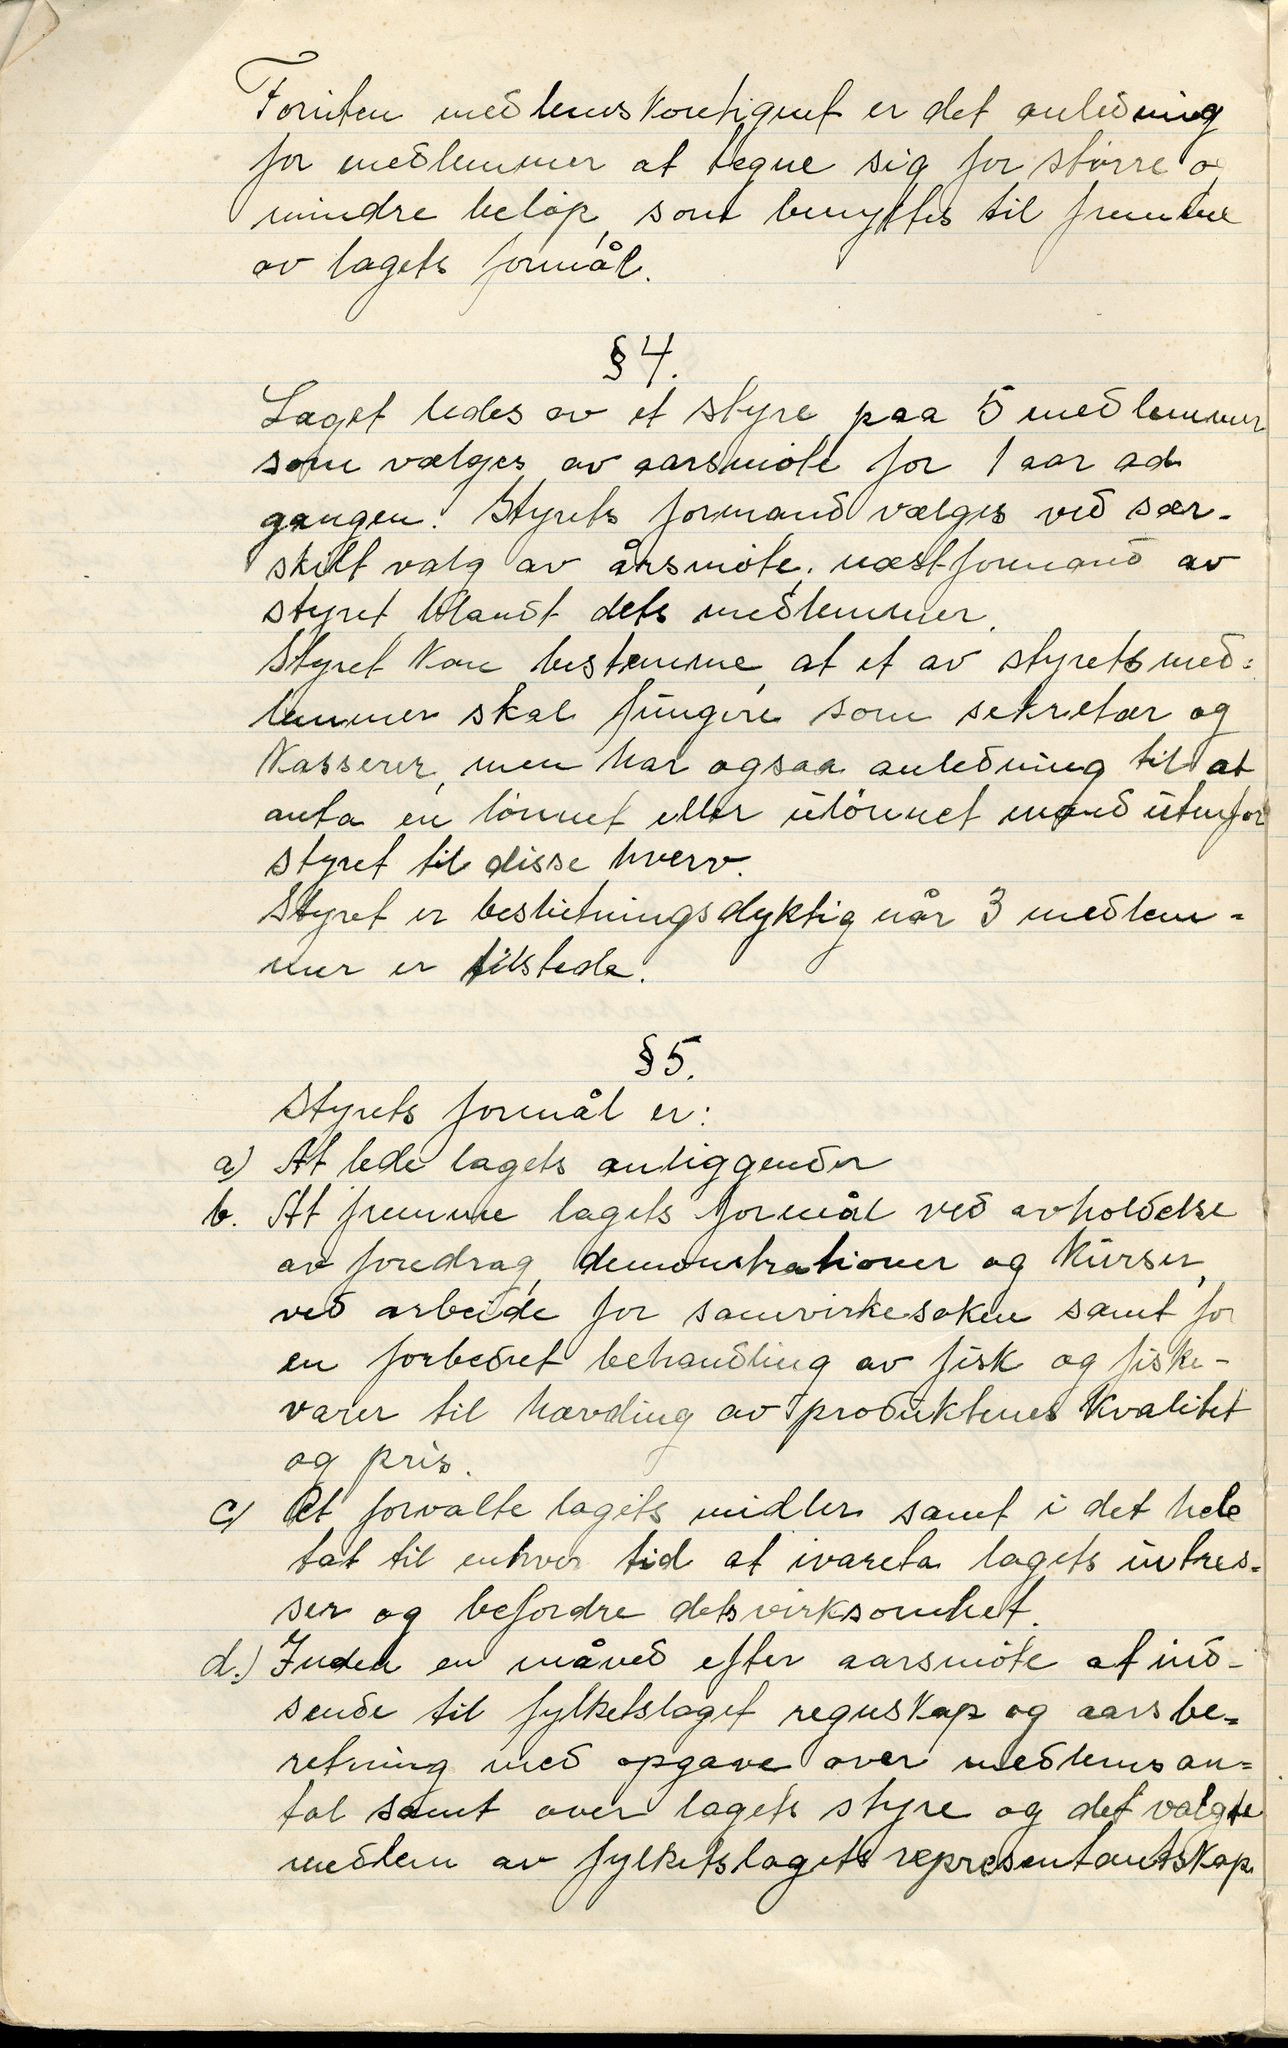 Foruten medlemskontigent er det anledning
for medlemmer at tegne sig for större og
mindre belöp, som benyttes til fremme
av lagets formål.
§ 4.
Laget ledes av et styre paa 5 medlemmer
som vælges av aarsmöte for 1 aar ad
gangen. Styrets formand vælges ved sær-
skilt valg av årsmöte, næstformand av
styret blandt dets medlemmer.
Styret kan bestemme, at et av styrets med=
lemmer skal fungere som sekretær og
kasserer, men har ogsaa anledning til at
anta en lönnet eller ulönnet mand utenfor
styret til disse hverv.
Styret er beslutningsdyktig når 3 medlem=
mer er tilstede.
§ 5.
Styrets formål er:
a) At lede lagets anliggender
b. At fremme lagets formål ved avholdelse
av foredrag, demonstrationer og kurser,
ved arbeide for samvirkesaken samt for
en forbedret behandling av fisk og fiske-
varer til hævding av produktenes kvalitet
og pris.
c) At forvalte lagets midler samt i det hele
tat til enhver tid at ivareta lagets intres=
ser og befordre dets virksomhet.
d.) Inden en måned efter aarsmöte at ind-
sende til fylketslaget regnskap og aarsbe=
retning med opgave over medlemsan=
tal samt over lagets styre og det valgte
medlem av fylketslagets representantskap